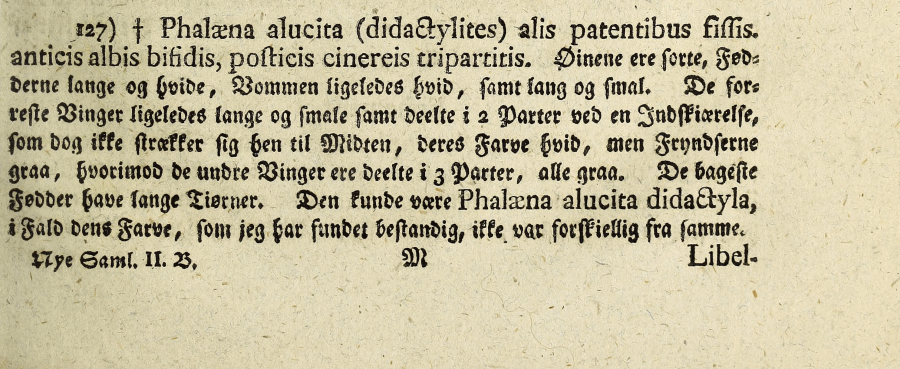 127) † Phalæna alucita (didactylites) alis patentibus fissis.
anticis albis bifidis, posticis cinereis tripartitis. Øinene ere sorte, Fød-
derne lange og hvide, Vommen ligeledes hvid, samt lang og smal. De for-
reste Vinger ligeledes lange og smale samt deelte i 2 Parter ved en Indskiærelse,
som dog ikke strækker sig hen til Midten, deres Farve hvid, men Fryndserne
graa, hvorimod de undre Vinger ere deelte i 3 Parter, alle graa. De bageste
Fødder have lange Tiørner. Den kunde være Phalæna alucita didactyla,
i Fald dens Farve, som jeg har fundet bestandig, ikke var forskiellig fra samme.
Nye Saml. II. B. M Libel-